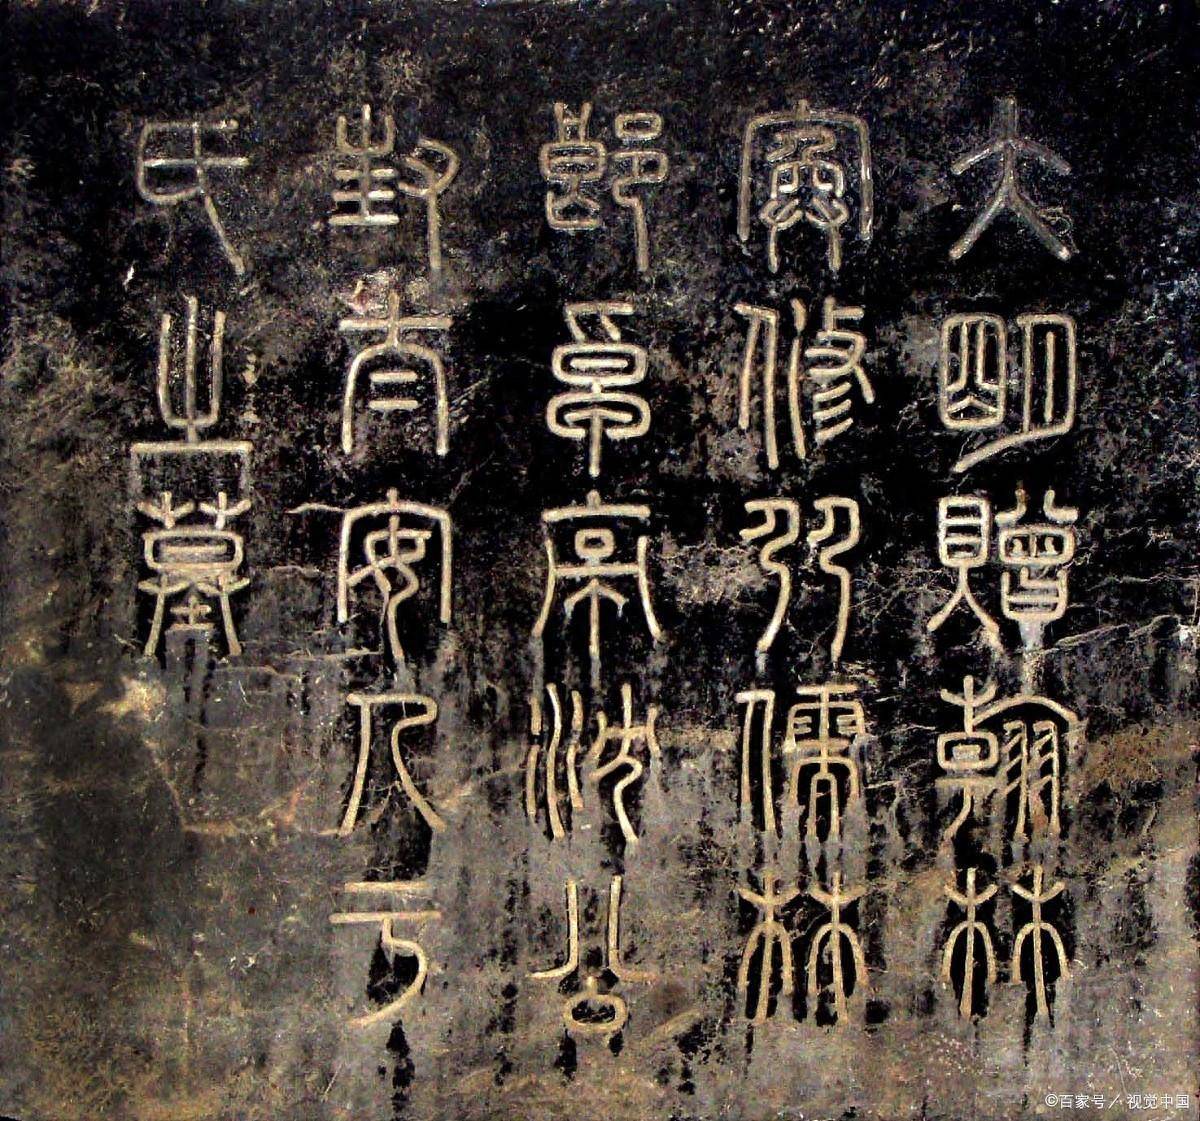 大明贈翰林
院修撰儒林
郎卓亭沈公
封太安人于
氏之墓
©百家号/视觉中国